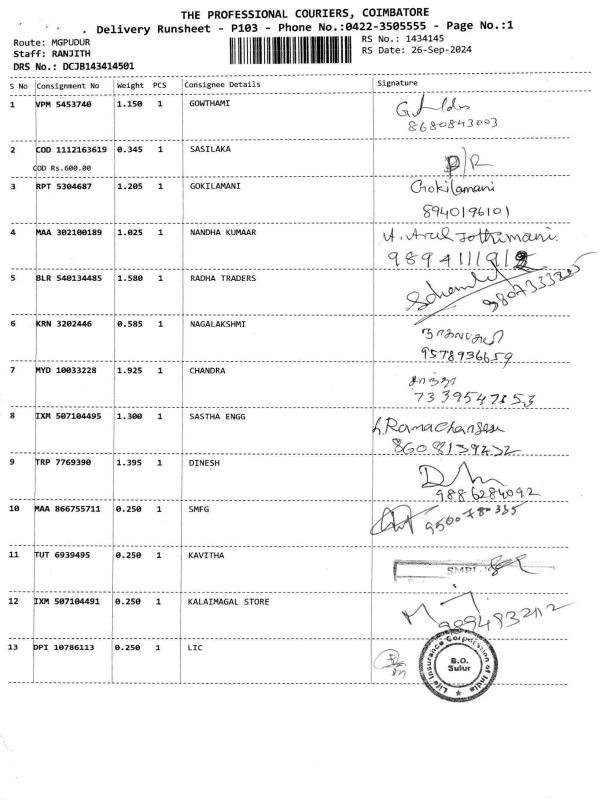 THE PROFESSIONAL COURIERS, COIMBATORE
. Delivery Runsheet - P103 - Phone No.:0422-3505555 - Page No.:1
Route: MGPUDUR
Staff: RANJITH
DRS No.: DCJB143414501
RS No.: 1434145
RS Date: 26-Sep-2024
S No Consignment No Weight PCS Consignee Details Signature
1 VPM 5453740 1.150 1 GOWTHAMI
8680843003
2 COD 1112163619 0.345 1 SASILAKA
COD Rs.600.00
D/R
3 RPT 5304687 1.205 1 GOKILAMANI Gokilamani
8940196101
4 MAA 302100189 1.025 1 NANDHA KUMAAR A. Arul Jothimani.
9894111912
5 BLR 540134485 1.580 1 RADHA TRADERS
6 KRN 3202446 0.585 1 NAGALAKSHMI நாகலட்சுமி
9578936659
7 MYD 10033228 1.925 1 CHANDRA சாந்தா
7339547353
8 IXM 507104495 1.300 1 SASTHA ENGG
8608139232
9 TRP 7769390 1.395 1 DINESH
9886284092
10 MAA 866755711 0.250 1 SMFG 9500780335
11 TUT 6939495 0.250 1 KAVITHA
12 IXM 507104491 0.250 1 KALAIMAGAL STORE
13 DPI 10786113 0.250 1 LIC
Life Insurance Corporation of India
B.O.
Sulur